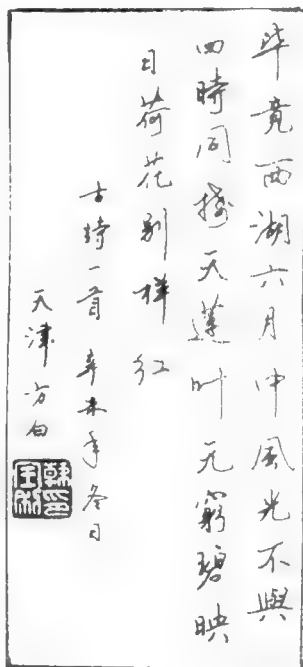 毕竟西湖六月中風光不與
四時同接天蓮叶无窮碧映
日荷花别樣红
古詩一首 辛未年冬日
天津方白